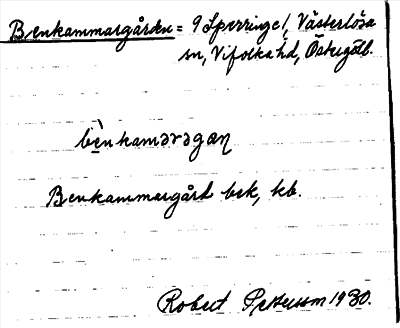 Benkammargården = 9 Sperringe 1, Västerlösa
sn, Vifolka hd, Östergötl.
bènkamaragaɳ
Benkammargård bek, kb.
Robert Pettersson 1930.